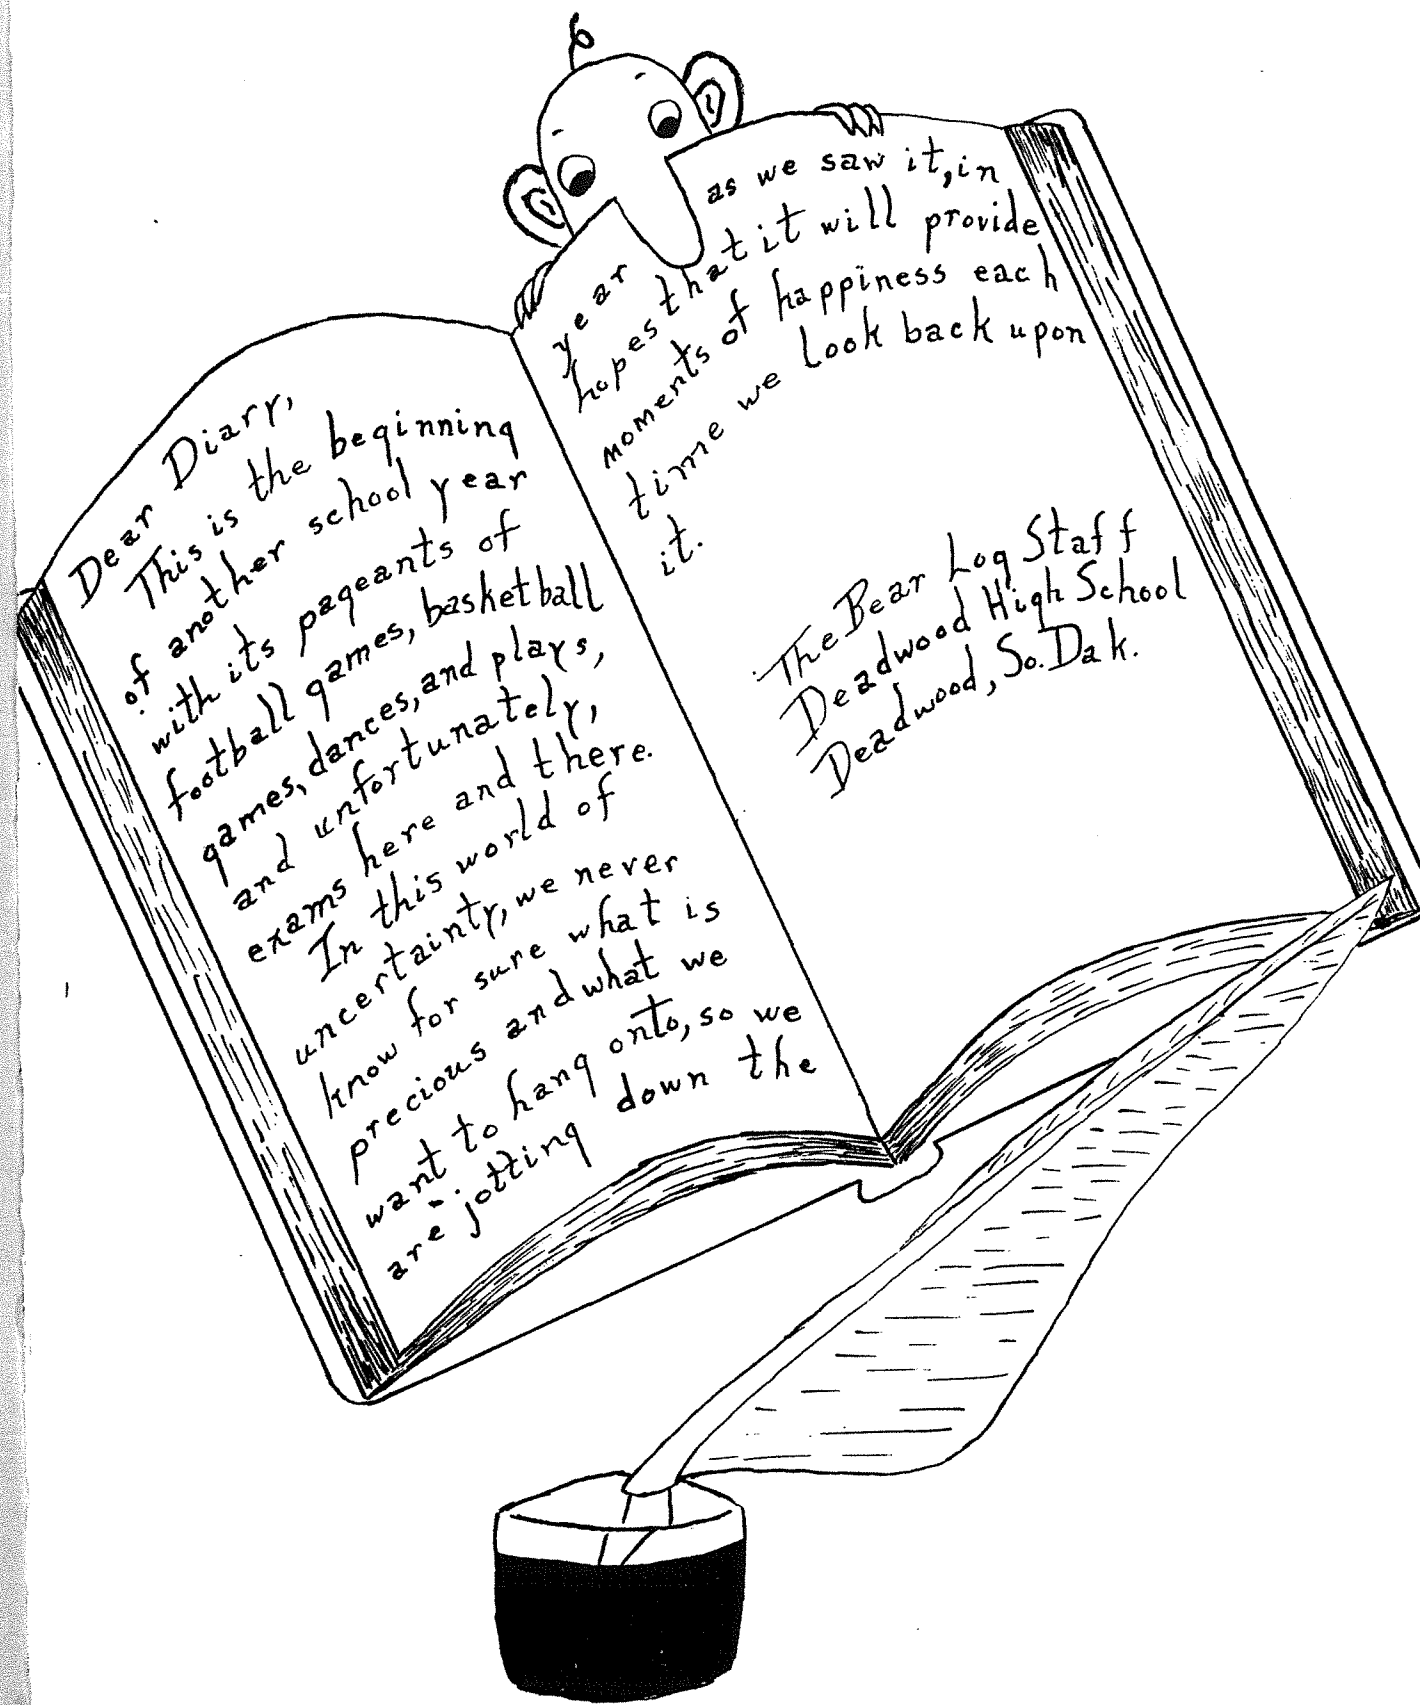 Dear Diary,
This is the beginning
of another school year
with its pageants of
football games, basketball
games, dances, and plays,
and unfortunately,
exams here and there.
In this world of
uncertainty, we never
know for sure what is
precious and what we
want to hang onto, so we
are jotting down the
year as we saw it, in
hopes that it will provide
moments of happiness each
time we look back upon
it.
The Bear Log Staff
Deadwood High School
Deadwood, So. Dak.